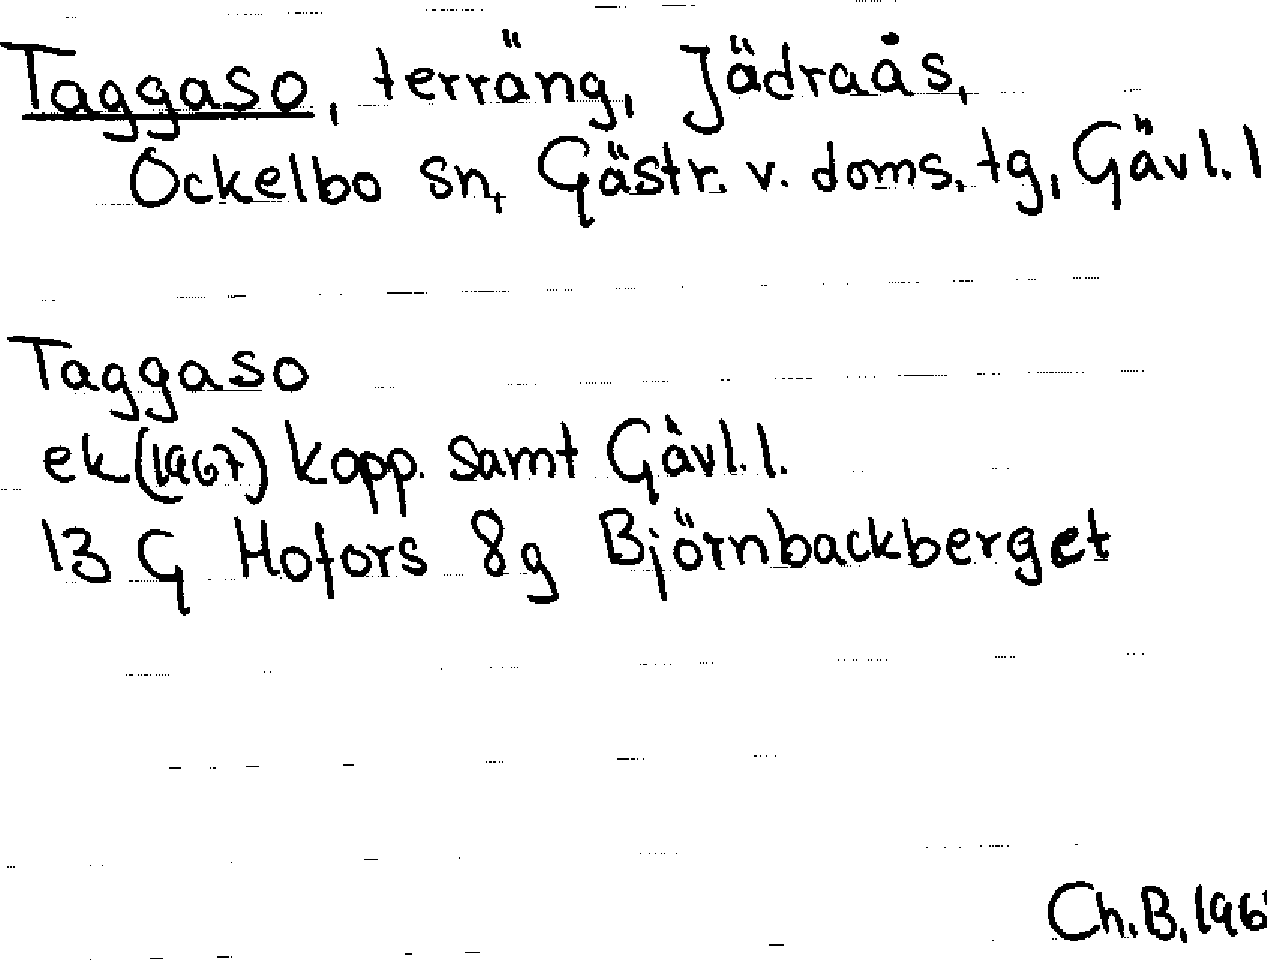 Taggaso, terräng, Jädraås,
Ockelbo sn, Gästr. v. doms. tg, Gävl. l
Taggaso
ek (1967) kopp. samt Gävl. l.
13 G Hofors 8g Björnbackberget
Ch. B. 196